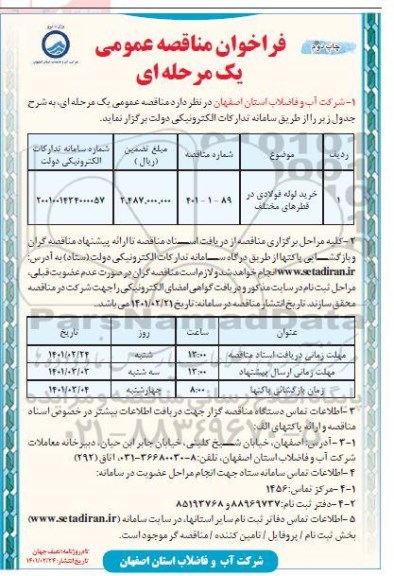 چاپ دوم
فراخوان مناقصه عمومی
یک مرحله ای
۱- شرکت آب و فاضلاب استان اصفهان در نظر دارد مناقصه عمومی یک مرحله ای، به شرح
جدول زیر را از طریق سامانه تدارکات الکترونیکی دولت برگزار نماید.
ردیف موضوع شماره مناقصه مبلغ تضمین (ریال) شماره سامانه تدارکات الکترونیکی دولت
۱ خرید لوله فولادی در قطرهای مختلف ۸۹ - ۱ - ۴۰۱ ۲,۴۸۷,۰۰۰,۰۰۰ ۲۰۰۱۰۰۱۴۳۴۰۰۰۰۵۷
۲- کلیه مراحل برگزاری مناقصه از دریافت اسناد مناقصه تا ارائه پیشنهاد مناقصه گران
و بازگشایی پاکتها از طریق درگاه سامانه تدارکات الکترونیکی دولت (ستاد) به آدرس:
www.setadiran.ir انجام خواهد شد و لازم است مناقصه گران در صورت عدم عضویت قبلی،
مراحل ثبت نام در سایت مذکور و دریافت گواهی امضای الکترونیکی را جهت شرکت در مناقصه
محقق سازند. تاریخ انتشار مناقصه در سامانه: تاریخ ۱۴۰۱/۰۲/۲۱ می باشد.
عنوان ساعت روز تاریخ
مهلت زمانی دریافت اسناد مناقصه ۱۳:۰۰ شنبه ۱۴۰۱/۰۲/۲۴
مهلت زمانی ارسال پیشنهاد ۱۳:۰۰ سه شنبه ۱۴۰۱/۰۳/۰۳
زمان بازگشائی پاکتها ۸:۰۰ چهارشنبه ۱۴۰۱/۰۳/۰۴
۳- اطلاعات تماس دستگاه مناقصه گزار جهت دریافت اطلاعات بیشتر در خصوص اسناد
مناقصه و ارائه پاکتهای الف:
۳-۱- آدرس: اصفهان، خیابان شیخ کلینی، خیابان جابر ابن حیان، دبیرخانه معاملات
شرکت آب و فاضلاب استان اصفهان، تلفن: ۸-۰۳۱-۳۶۶۸۰۰۳۰، اتاق (۲۹۲)
۴- اطلاعات تماس سامانه ستاد جهت انجام مراحل عضویت در سامانه:
۴-۱- مرکز تماس: ۱۴۵۶
۴-۲- دفتر ثبت نام: ۸۸۹۶۹۷۳۷ و ۸۵۱۹۳۷۶۸
۵- اطلاعات تماس دفاتر ثبت نام سایر استانها، در سایت سامانه (www.setadiran.ir)
بخش ثبت نام / پروفایل / تامین کننده / مناقصه گر موجود است.
شرکت آب و فاضلاب استان اصفهان
نام روزنامه: نصف جهان
تاریخ انتشار: ۱۴۰۱/۰۲/۲۴